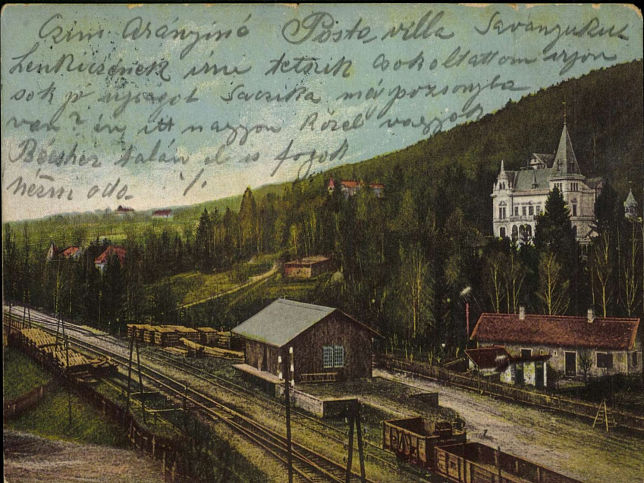 Czim Aranyinó Posta villa Savanyukut
Lenkicsének irni tetszik csokoltattom irjon
sok jó ujságot Saczika már pozsonyba
van? én itt nagyon közel vagyok
Bécshez talán el is fogok
nézni oda. ./.